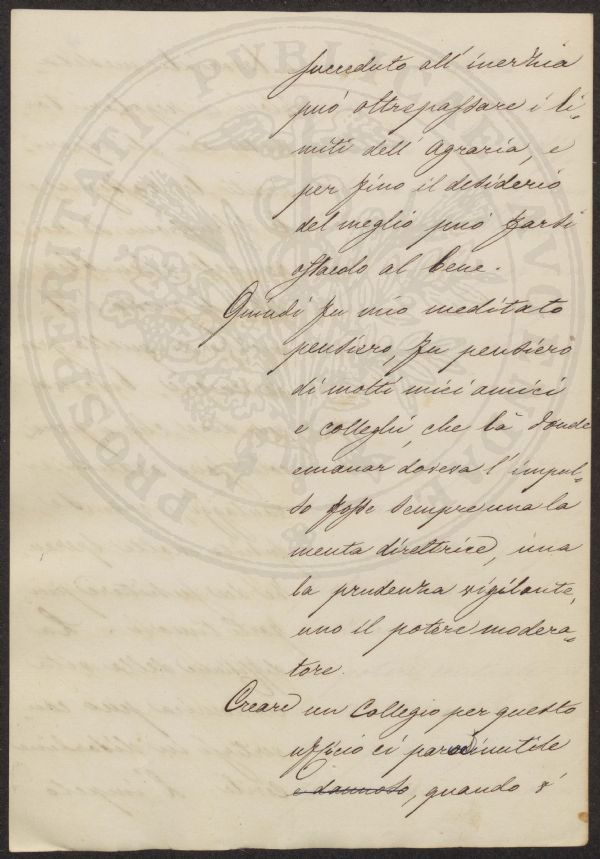 succeduto all'inerzia
può oltrepassare i li-
miti dell'Agraria, e
per fino il desiderio
del meglio può farsi
ostacolo al bene.
Quindi fu mio meditato
pensiero, fu pensiero
di molti miei amici
e colleghi, che là donde
emanar doveva l'impul-
so fosse sempre una la
mente direttrice, una
la prudenza vigilante,
uno il potere modera-
tore.
Creare un Collegio per questo
ufficio ci parve inutile
e dannoso, quando
PROSPERITATI PUBLICAE AUGENDAE